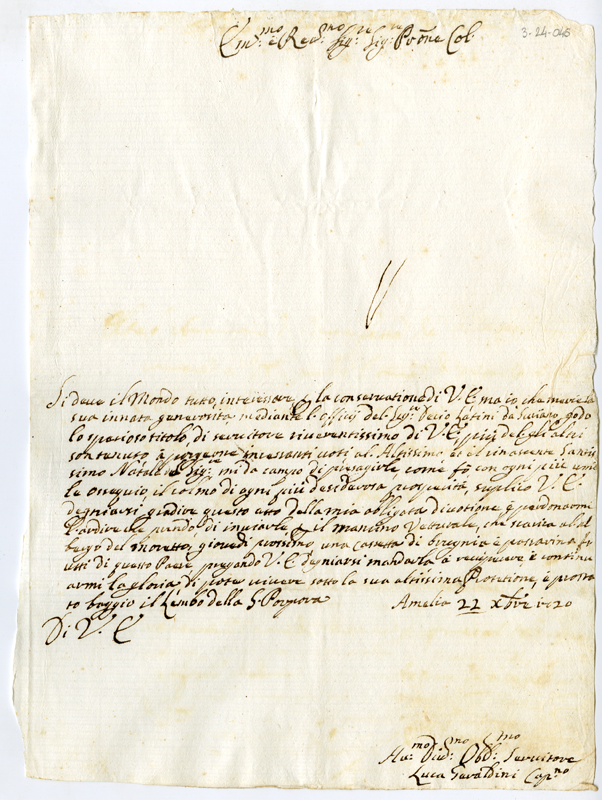 3-24-045
Em:mo e Rev:mo Sig:re Sig:re Prōne Col:
Si deve il Mondo tuto, interessare, la conservatione di V. E ma io che merce la
sua innata generosita mediante l'officij del Sig:r Decio Latini da godo
lo spetioso titolo, di servitore riverentissimo di V. E più del gli altri
son tenuto, à porgerne incessanti voti al Altissimo et el rinascente Santis
simo Natale Sig:re mi da campo di presagirle come fo con ogni più umi
le ossequio, il colmo di ogni più desiderosa prosperità, suplico V. E
degniarsi gradire questo atto della mia obligata divotione è perdonarme
l'ardire che prendo di inviarle il Vetturale, che scarica al al
bergo del moretto giovedi prossimo una Cassetta di è fr
utti di questo Paese pregando V. E degniarsi mandarla à recipere è continu
armi la gloria di poter vivere sotto la sua altissima Protetione, è prostra
to baggio il Lembo della S. Porpora Amelia 22 Xbre 1720
Di V. E
Hu:mo Div:mo Obb:mo Servitore
Luca Geraldini Cap:no